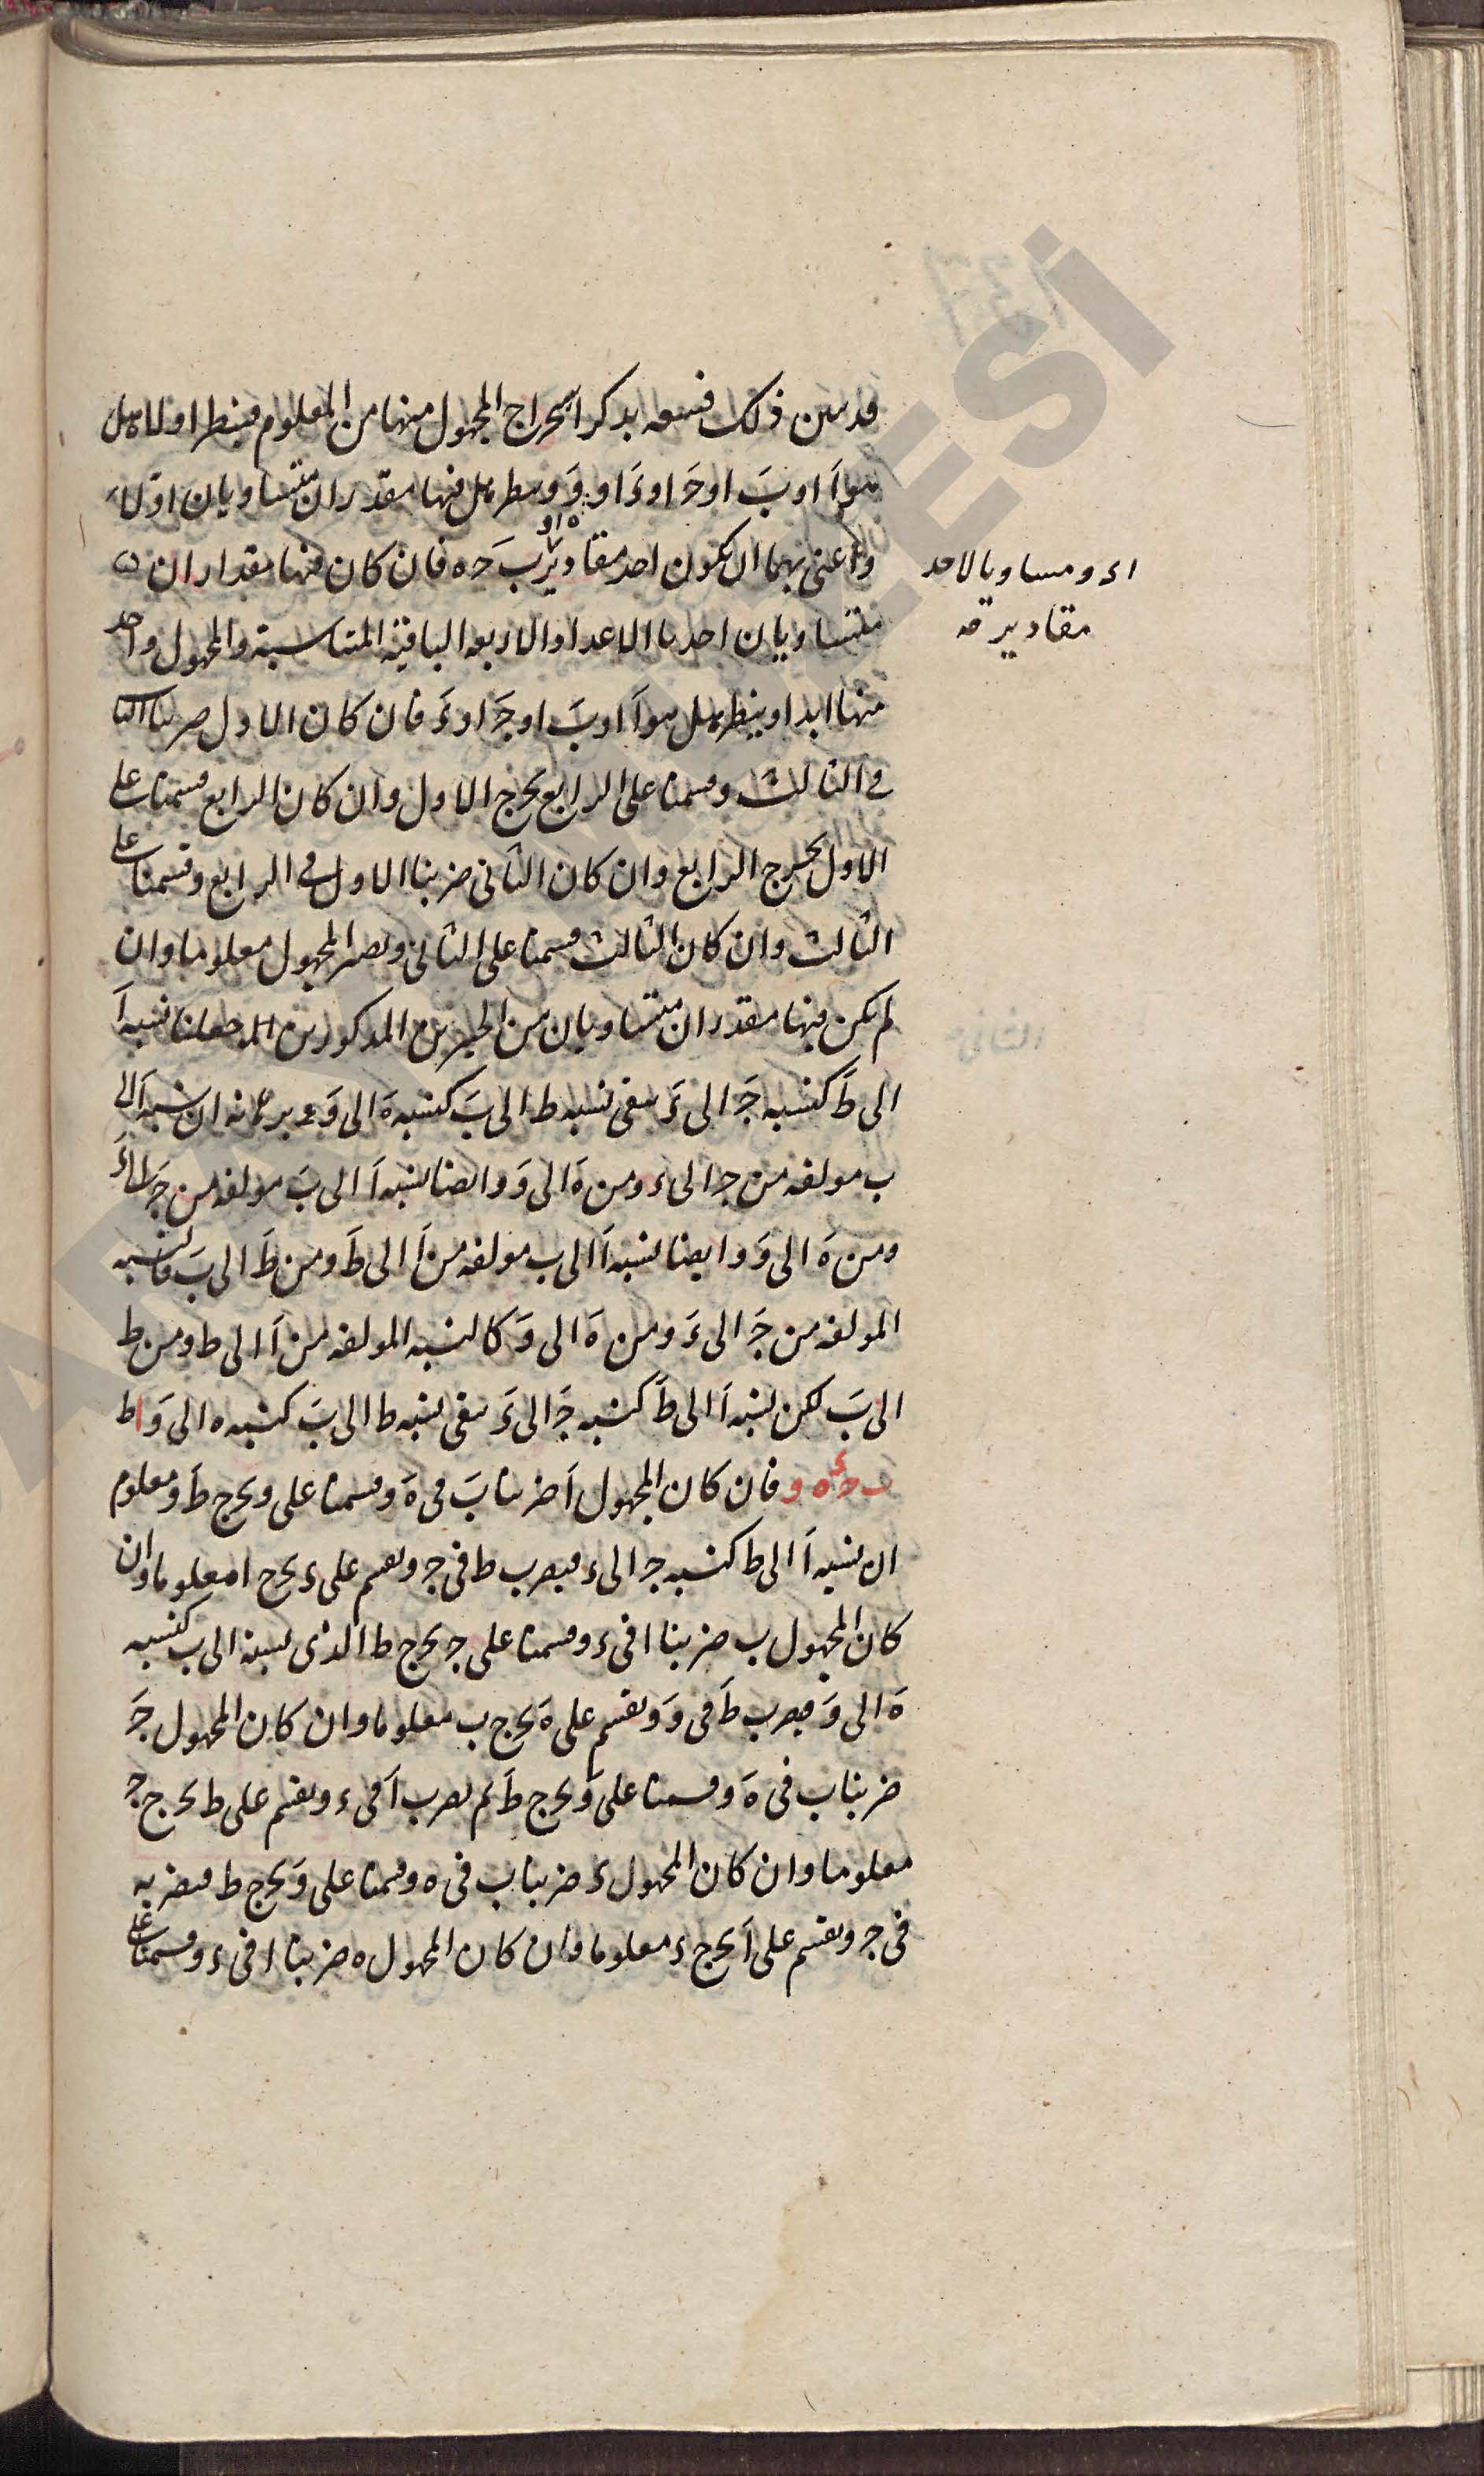 قد تبين ذلك فنتبعه بذكر استخراج المجهول منها من المعلوم فينظر اولا هل
هو آ او ب او ج او د او ه او و وينظر هل فيها مقداران متساويان او لا
واعنى بهما ان يكون احد مقادير ب ج ه فان كان فيها مقداران
متساويان احد الاعداد الاربعه الباقية المتناسبة والمجهول واحد
منها ابدا وينظر هل هو آ او ب او ج او د فان كان الاول ضربنا الثانى
فى الثالث وقسمنا على الرابع يخرج الاول وان كان الرابع قسمنا على
الاول يخرج الرابع وان كان الثانى ضربنا الاول فى الرابع وقسمنا على
الثالث وان كان الثالث قسمنا على الثانى ويصير المجهول معلوما وان
لم يكن فيها مقدران متساويان من المذكورين جعلنا نسبه آ
الى ط كنسبه ج الى د يبقى نسبه ط الى ب كنسبه ه الى و برهانه ان نسبه آ الى
ب مولفه من ج الى د ومن ه الى و وايضا نسبه آ الى ب مولفه من ج الى د
ومن ه الى و وايضا نسبه آ الى ب مولفه من آ الى ط ومن ط الى ب فالنسبه
المولفه من ج الى د ومن ه الى و كالنسبه المولفه من آ الى ط ومن ط
الى ب لكن نسبه آ الى ط كنسبه ج الى د يبقى نسبه ط الى ب كنسبه ه الى و ا ط
ب ج د ه و فان كان المجهول آ ضربنا ب فى ه وقسمنا على و يخرج ط ومعلوم
ان نسبه آ الى ط كنسبه ج الى د فيضرب ط فى ج ويقسم على د يخرج ا معلوما وان
كان المجهول ب ضربنا ا فى د وقسمنا على ج يخرج ط الذى نسبته الى ب كنسبه
ه الى و فيضرب ط فى و ويقسم على ه يخرج ب معلوما وان كان المجهول ج
ضربنا ب فى ه وقسمنا على و يخرج ط ثم يضرب آ فى د ويقسم على ط يخرج ج
معلوما وان كان المجهول د ضربنا ب فى ه وقسمنا على و يخرج ط فيضربه
فى ج ويقسم على آ يخرج د معلوما وان كان المجهول ه ضربنا ا فى د وقسمنا على
ا د و مساويا لاحد
مقادير